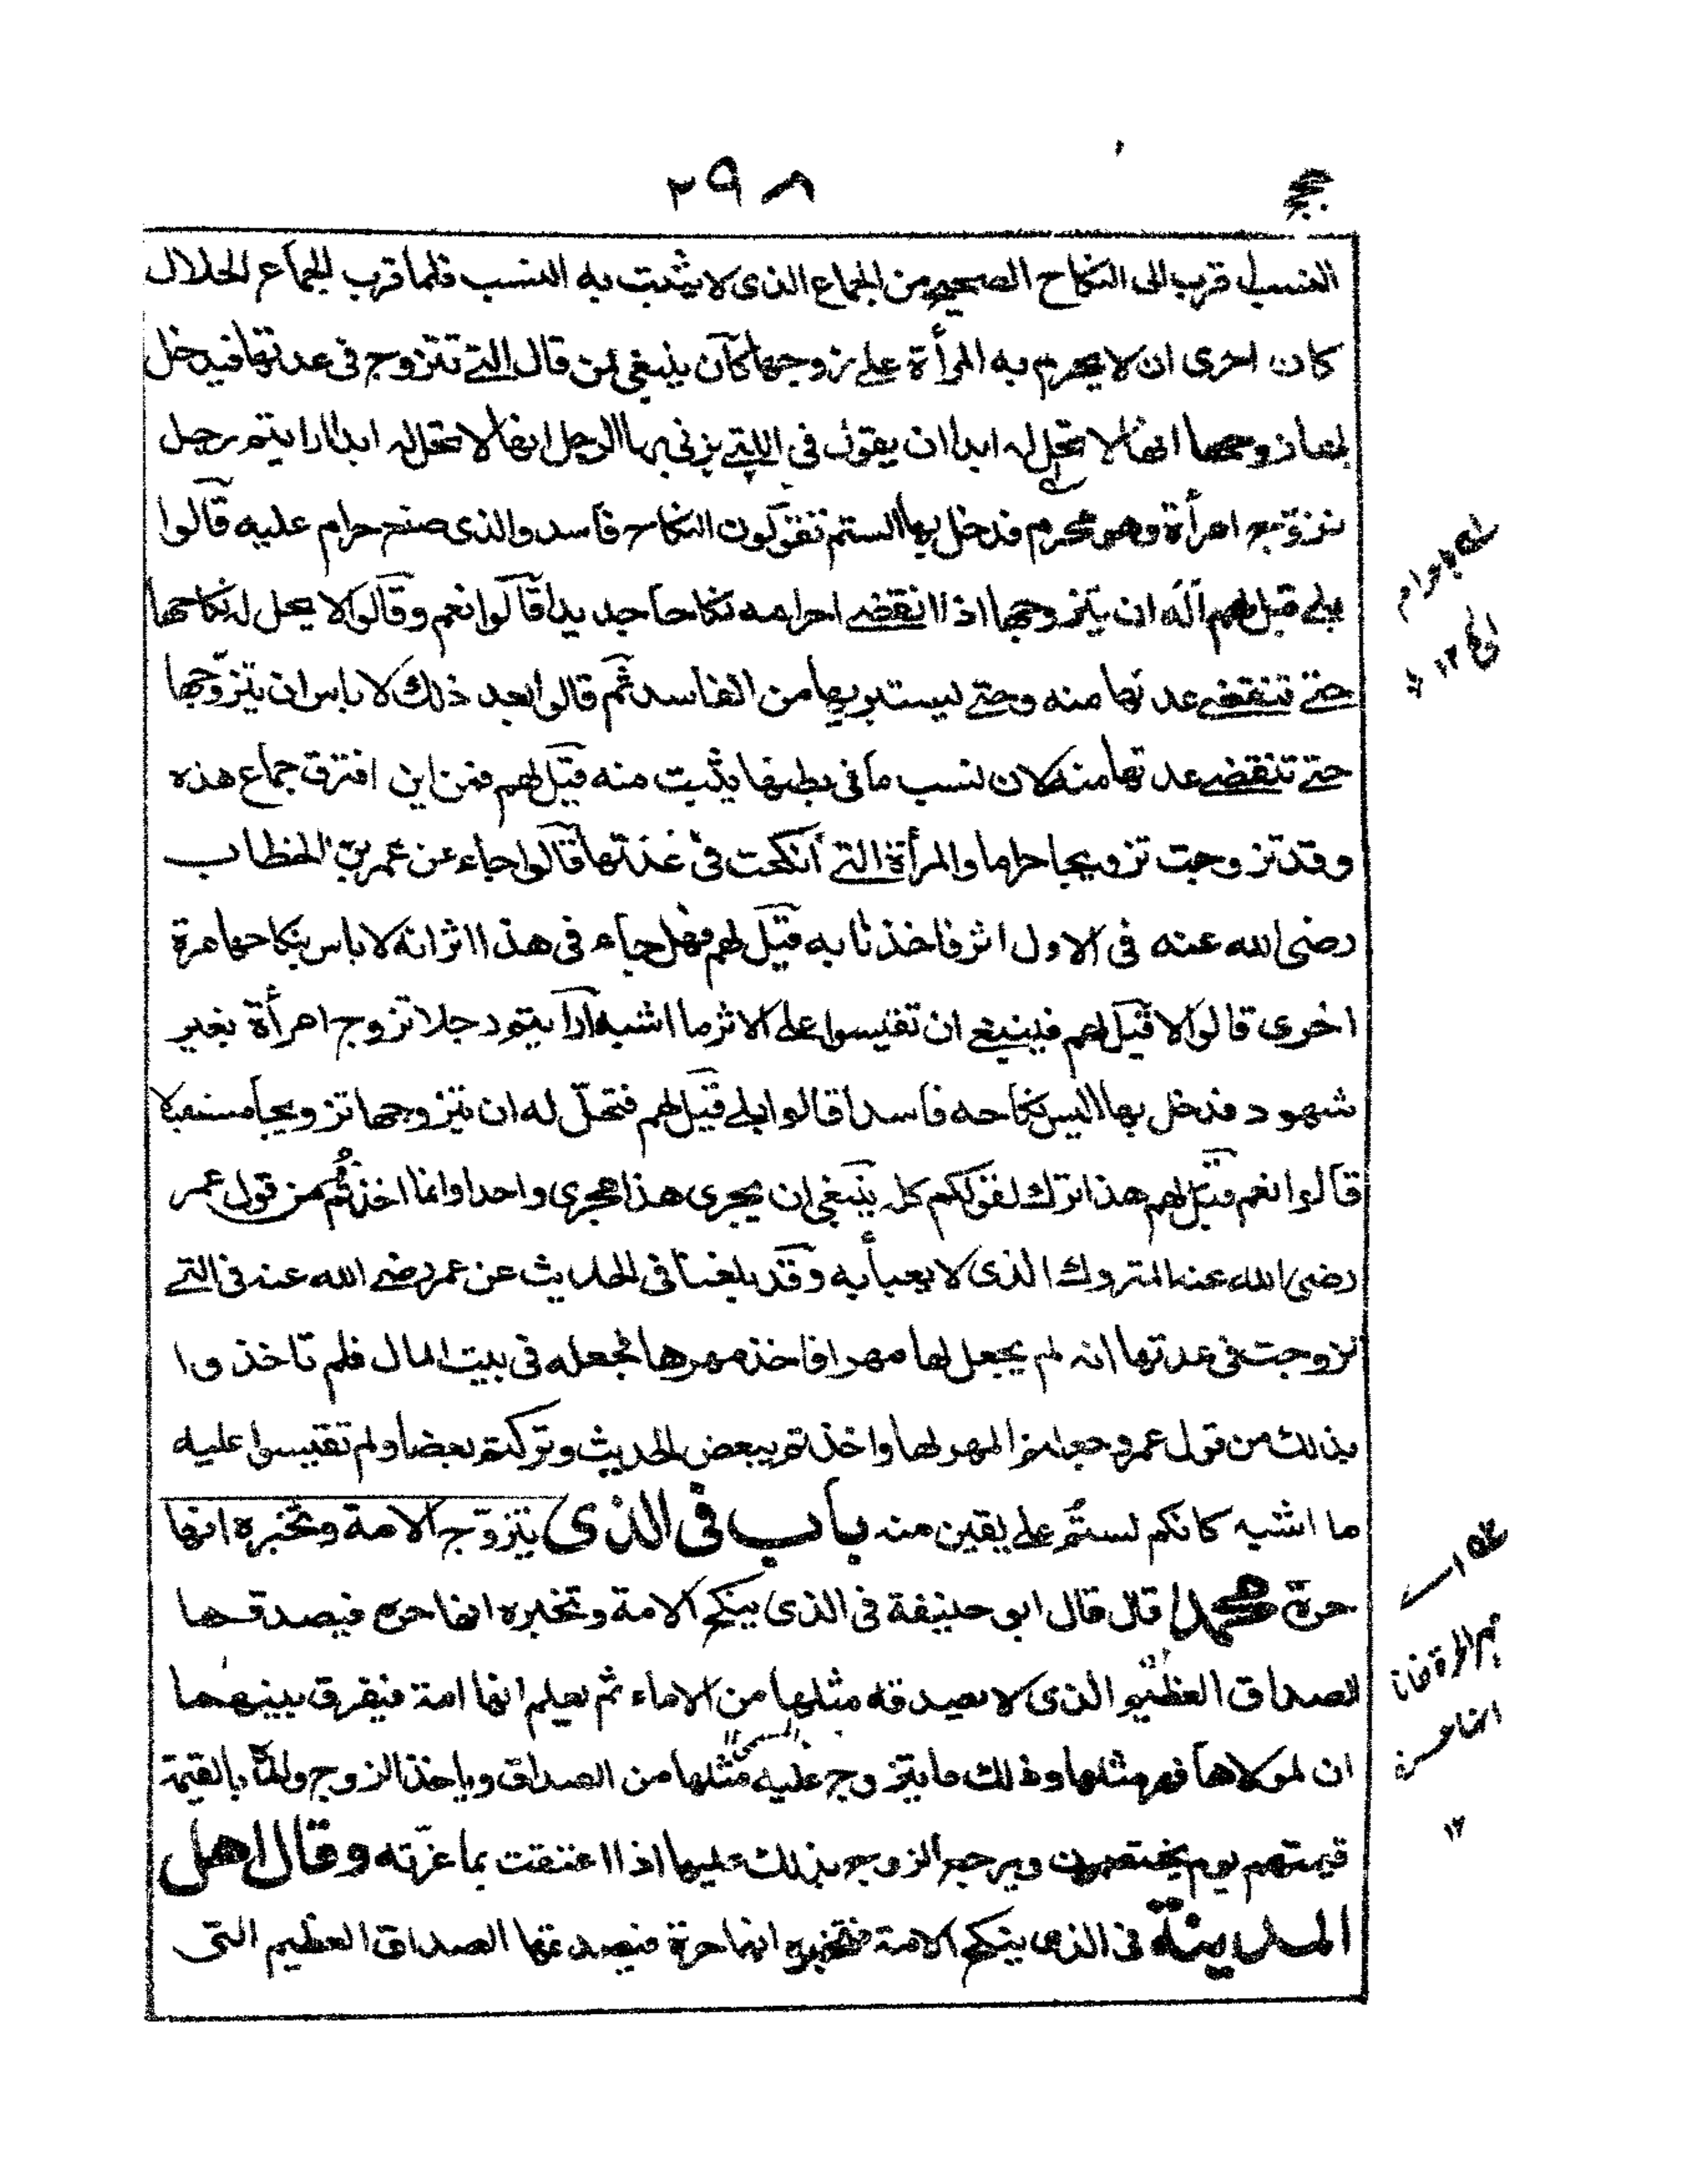 ٢٩٨
النسب الى قرب الى النكاح الصحيح من الجماع الذى لا يثبت به النسب فلما قرب الجماع الحلال
كان احرى ان لا يحرم به المرأة على زوجها كان ينبغى لمن قال التى تتزوج فى عدتها فيدخل
بها زوجها انها لا تحل له ابدا ان يقول فى اللتى يزنى بها الرجل انها لا تحل له ابدا ارايتم رجل
تزوج امرأة وهو محرم فدخل بها الستم تقولون النكاح فاسد والذى صنع حرام عليه قالوا
بلى قيل لهم أله ان يتزوجها اذا انقضى احرامه نكاحا جديدا قالوا نعم وقالوا لا يحل له نكاحها
حتى تنقضى عدتها منه وحتى يستبريها من الفاسد ثم قالوا بعد ذلك لا باس ان يتزوجها
حتى تنقضى عدتها منه لان نسب ما فى بطنها يثبت منه قيل لهم فمن اين افترق جماع هذه
وقد تزوجت تزويجا حراما والمرأة التى أنكحت فى عدتها قالوا جاء عن عمر بن الخطاب
رضى الله عنه فى الاول اثر فاخذنا به قيل لهم فهل جاء فى هذا اثر انه لا باس بنكاحها مرة
اخرى قالوا لا قيل لهم فينبغى ان تقيسوا على الاثر ما اشبه أرأيتم رجلا تزوج امرأة بغير
شهود فدخل بها اليس نكاحه فاسدا قالوا بلى قيل لهم فتحل له ان يتزوجها تزويجا مستقبلا
قالوا نعم قيل لهم هذا ترك لقولكم كله ينبغى ان يجرى هذا مجرى واحدا وانما اخذتم من قول عمر
رضى الله عنه المتروك الذى لا يعبأ به وقد بلغنا فى الحديث عن عمر رضى الله عنه فى التى
تزوجت فى عدتها انه لم يجعل لها مهرا فاخذ مهرها فجعله فى بيت المال فلم تاخذوا
بذلك من قول عمر وجعلتم المهر لها واخذتم ببعض الحديث وتركتم بعضا ولم تقيسوا عليه
ما اشبه كانكم لستم على يقين منه باب فى الذى يتزوج الامة وتخبره انها
حرة محمد قال قال ابو حنيفة فى الذى ينكح الامة وتخبره انها حرة فيصدقها
الصداق العظيم الذى لا يصدقه مثلها من الاماء ثم يعلم انها امة فيفرق بينهما
ان لمولاها مهر مثلها وذلك ما يتزوج عليه مثلها من الصداق وياخذ الزوج ولده بالقيمة
قيمتهم يوم يختصمون ويرجع الزوج بذلك عليها اذا اعتقت بما غرته وقال اهل
المدينة فى الذى ينكح الامة فتخبره انها حرة فيصدقها الصداق العظيم التى